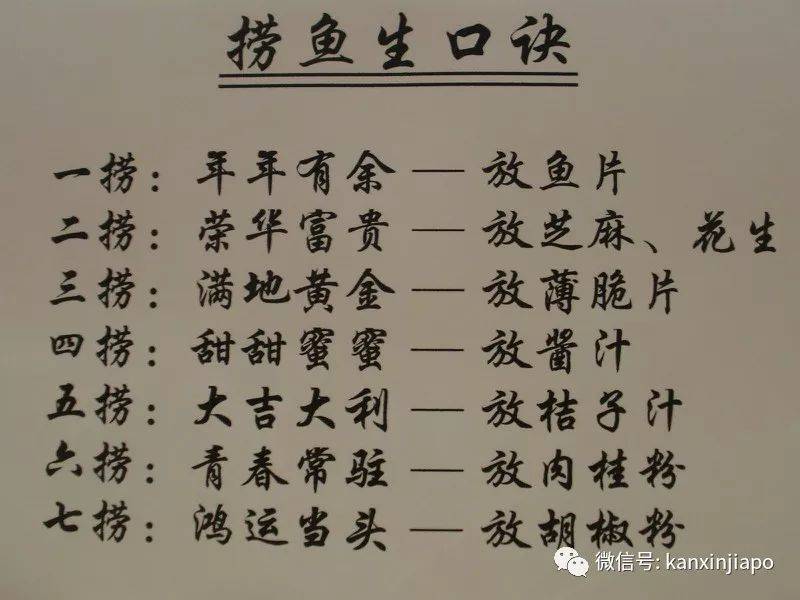 捞鱼生口诀
一捞：年年有余 — 放鱼片
二捞：荣华富贵 — 放芝麻、花生
三捞：满地黄金 — 放薄脆片
四捞：甜甜蜜蜜 — 放酱汁
五捞：大吉大利 — 放桔子汁
六捞：青春常驻 — 放肉桂粉
七捞：鸿运当头 — 放胡椒粉
微信号: kanxinjiapo